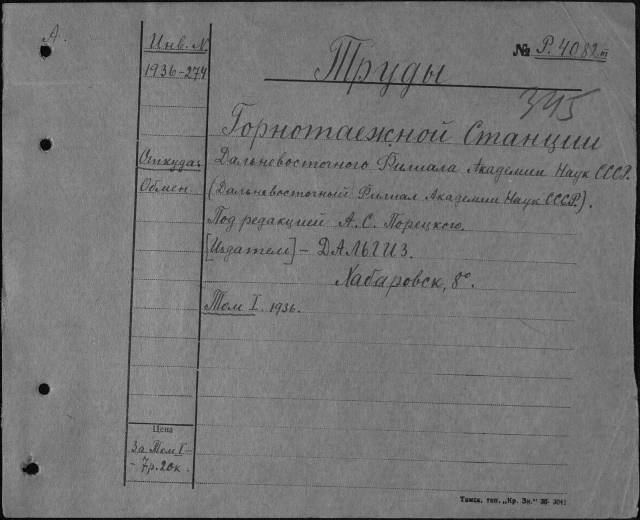 А.
Инв. N
1936-274
№ Р.4082 m
Труды
345
Горнотаежной Станции
Откуда:
Дальневосточного Филиала Академии Наук СССР.
Обмен.
(Дальневосточный Филиал Академии Наук СССР).
Под редакцией А.С. Порецкого.
[Издатель] - ДАЛЬГИЗ.
Хабаровск, 8°.
Том I. 1936.
Цена
За Том I -
- 7р.20к.
Томск, тип. „Кр. Зн." 36- 3041